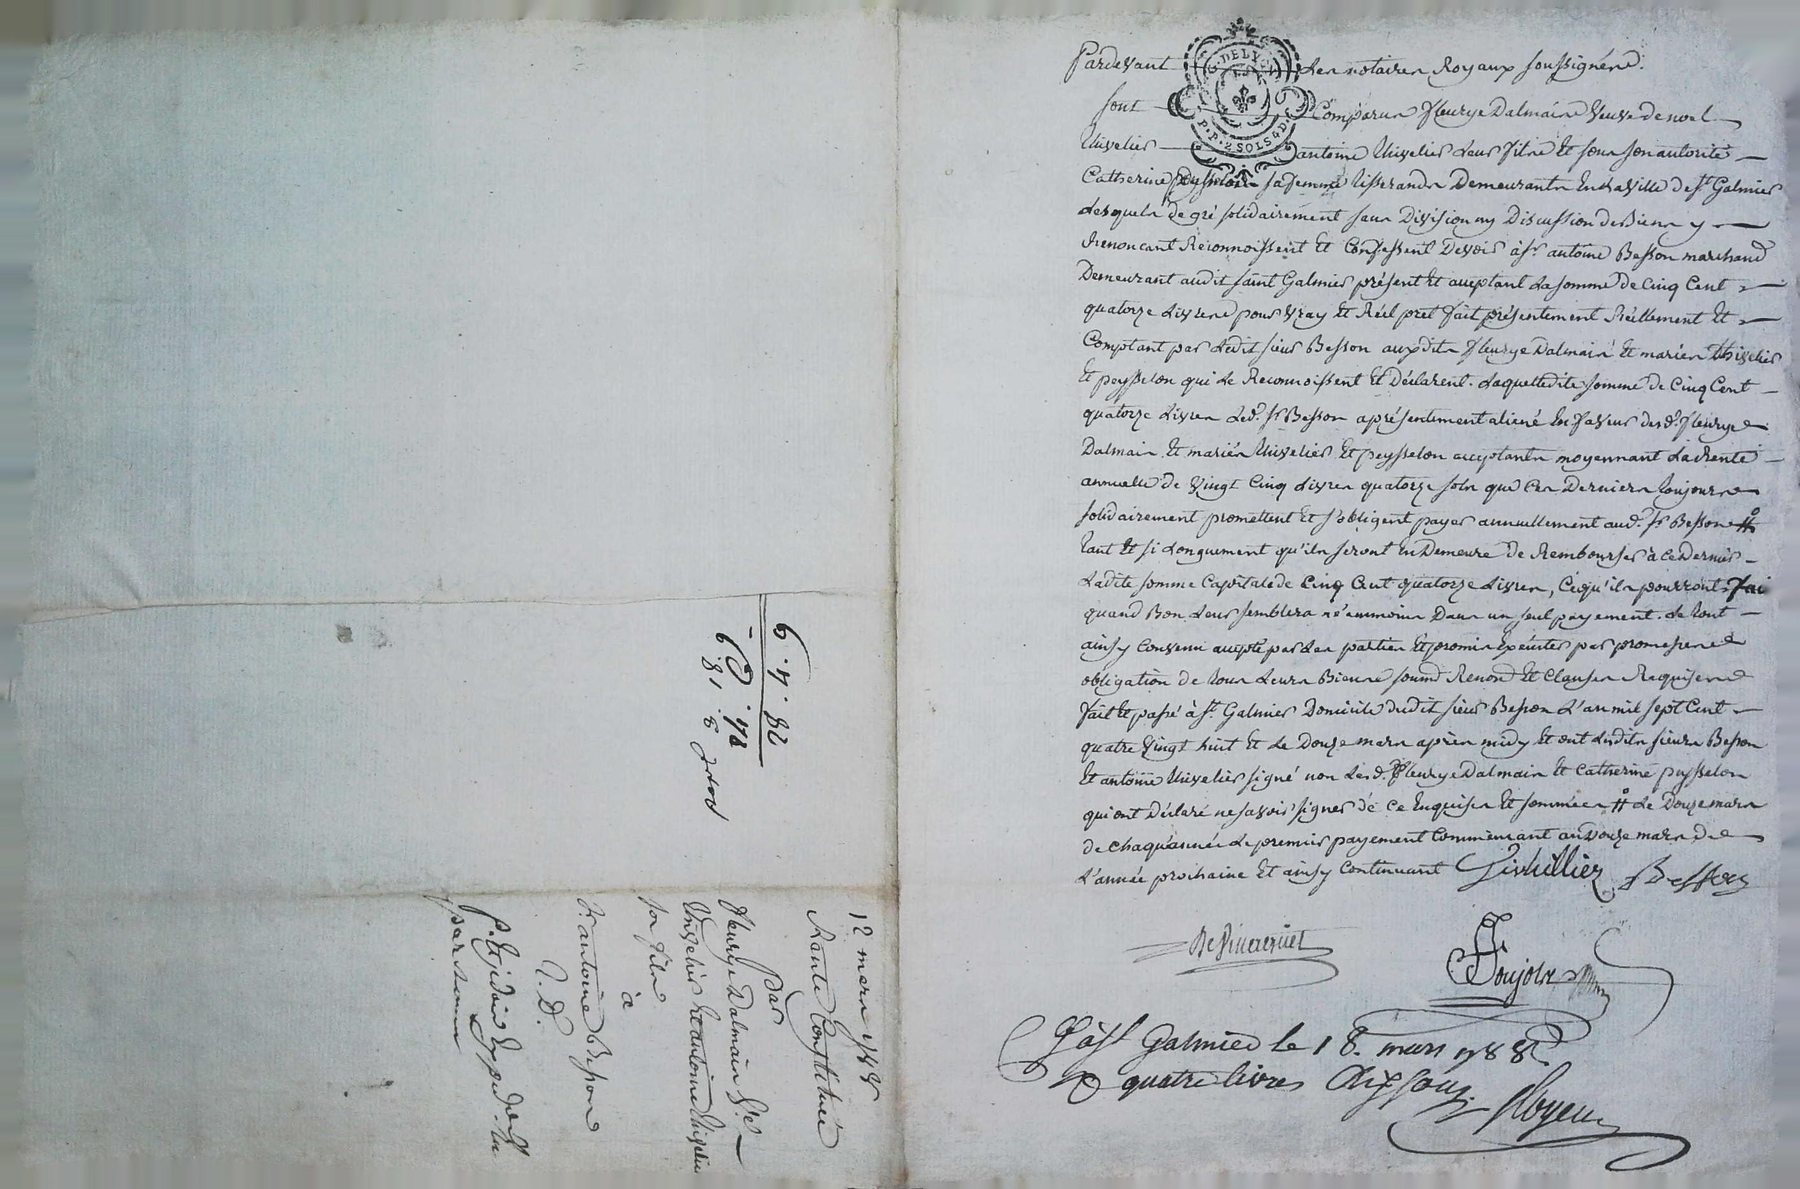 Pardevant les notaires Royaux soussignéz.
sont Comparus fleurye Dalmais Veuve de noel
thivelier antoine thivelier leur fils et sous son autorité
Catherine peysselon sa femme tisserands Demeurants En la Ville de st. Galmier
Lesquels de gré solidairement sans Division ny Discussion de Biens y
Renonçant Reconnoissent Et Confessent Devoir à sr. antoine Besson marchand
Demeurant audit saint Galmier présent Et acceptant La somme de Cinq Cent
quatorze Livres pour vray Et Réel pret fait présentement Réellement Et
Comptant par Ledit sieur Besson auxdits fleurye Dalmais Et mariés thivelier
Et peysselon qui Le Reconnoissent Et Déclarent. Laquelle dite somme de Cinq Cent
quatorze Livres Led. sr Besson a présentement aliené En faveur desd. fleurye
Dalmais Et mariés thivelier Et peysselon acceptants moyennant La Rente
annuelle de Vingt Cinq Livres quatorze sols que Ces Derniers toujours
solidairement promettent Et s'obligent payer annuellement aud. sr Besson #
tant Et si Longuement qu'ils seront En Demeure de Rembourser à ce Dernier
Ladite somme Capitale de Cinq Cent quatorze Livres, Ce qu'ils pourront fai
quand Bon Leur semblera né'ammoins Dans un seul payement. Le tout
ainsy Convenu accepté par Les parties Et promis Exécuter par promesses
obligation de tous Leurs Biens soumd Renond Et Clauses Requises
fait Et passé à st. Galmier Domicile dudit sieur Besson L'an mil sept Cent
quatre Vingt huit Et Le Douze mars après midy Et ont Lesdits sieurs Besson
Et antoine thivelier signé non Lesd. fleurye Dalmais Et Catherine peysselon
qui ont Déclaré ne savoir signer de Ce Enquises Et sommées # Le Douze mars
de chaqu'année Le premier payement Commençant au Douze mars de
L'année prochaine Et ainsy Continuant Besson
G. DE LYON
P.P. 2 SOLS 4 D.
st Galmier le 18. mars 1788
quatre livres dix sous
6 . 4 . 82
18
12 mars 1788
Rente Constituée
par
fleurye Dalmais Ve
thivelier Et antoine thivelier
son fils
à
sr. antoine Besson